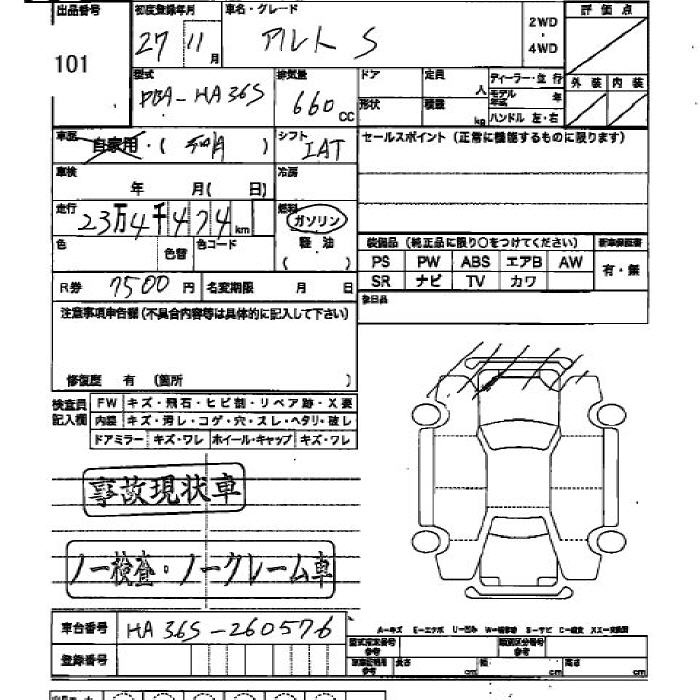 出品番号 初度登録年月 車名・グレード 評価点
101 27 11月 アルト S 2WD・4WD
型式 排気量 ドア 定員 人 ディーラー・並行 外装 内装
DBA-HA36S 660cc 形状 積載 kg モデル年式 年 ハンドル 左・右
車歴 自家用・( ) シフト IAT セールスポイント(正常に機能するものに限ります)
車検 年 月( 日) 冷房
走行 23万4千474km 燃料 ガソリン
色 色替 色コード 軽油 ( ) 装備品(純正品に限り○をつけてください) 新車保証書
PS PW ABS エアB AW 有・無
R券 7500円 名変期限 月 日 SR ナビ TV カワ
注意事項申告欄(不具合内容等は具体的に記入して下さい)
修復歴 有 (箇所 )
検査員記入欄 FW キズ・飛石・ヒビ割・リペア跡・X要
内装 キズ・汚レ・コゲ・穴・スレ・ヘタリ・破レ
ドアミラー キズ・ワレ ホイール・キャップ キズ・ワレ
事故現状車
ノー検査・ノークレーム車
車台番号 HA36S-260576
登録番号 長さ 幅 高さ